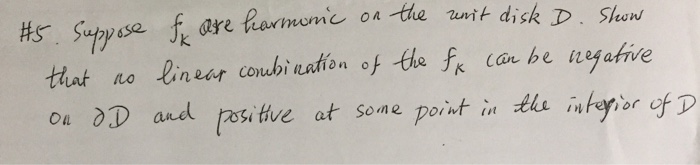 #5. Suppose f_k are harmonic on the unit disk D. Show
that no linear combination of the f_k can be negative
on ∂D and positive at some point in the interior of D